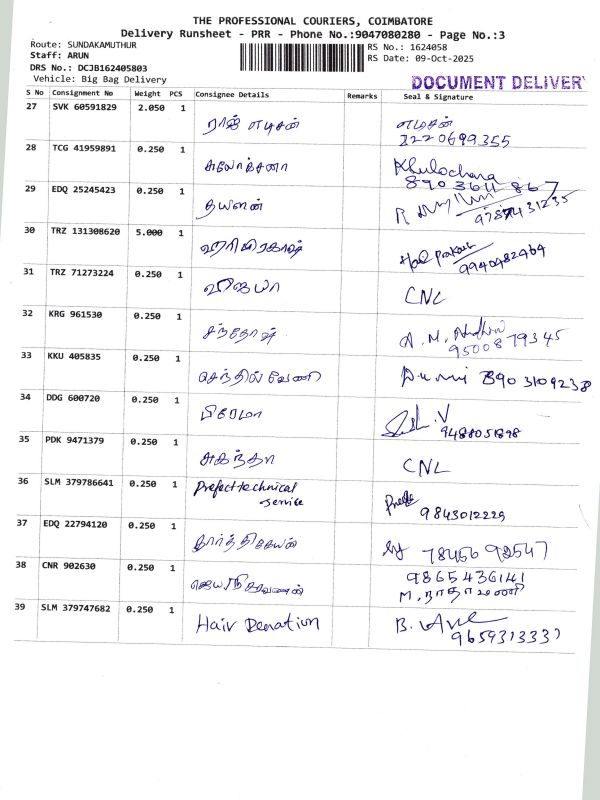 THE PROFESSIONAL COURIERS, COIMBATORE
Delivery Runsheet - PRR - Phone No.:9047080280 - Page No.:3
Route: SUNDAKAMUTHUR
Staff: ARUN
DRS No.: DCJB162405803
Vehicle: Big Bag Delivery
RS No.: 1624058
RS Date: 09-Oct-2025
DOCUMENT DELIVER
S No Consignment No Weight PCS Consignee Details Remarks Seal & Signature
27 SVK 60591829 2.050 1 ராஜ் எடிசன் எடிசன்
28 TCG 41959891 0.250 1 சுலோச்சனா Khulochana
29 EDQ 25245423 0.250 1 தயாளன்
30 TRZ 131308620 5.000 1 ஹரிபிரகாஷ் Hari Prakash
9940482464
31 TRZ 71273224 0.250 1 விஜயா CNL
32 KRG 961530 0.250 1 சந்தோஷ் A. M.
9500879345
33 KKU 405835 0.250 1 செந்தில் வேணி 8903109238
34 DDG 600720 0.250 1 பிரேமா
9488051898
35 PDK 9471379 0.250 1 CNL
36 SLM 379786641 0.250 1 Prefect technical
service
9843012229
37 EDQ 22794120 0.250 1 கார்த்திகேயன் 7845692547
38 CNR 902630 0.250 1 9865436141
M. நாதாமணி
39 SLM 379747682 0.250 1 Hair Donation B.